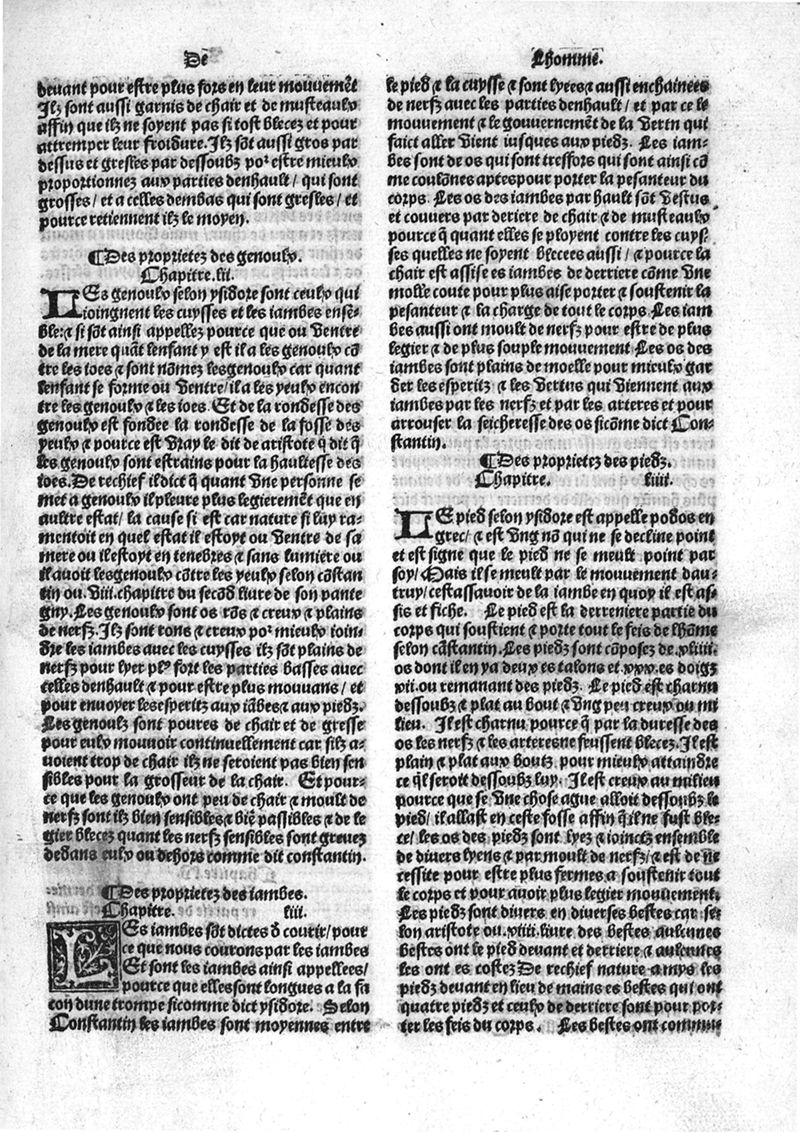 De
Lhomme.
devant pour estre plus fors en leur mouvemēt
Ilz sont aussi garnis de chair et de musteaulx
affin que ilz ne soyent pas si tost blecez et pour
attremper leur froidure. Ilz sōt aussi gros par
dessus et gresles par dessoubz poꝰ estre mieulx
proportionnez aux parties denhault/ qui sont
grosses/ et a celles dembas qui sont gresles/ et
pource retiennent ilz le moyen.
¶Des proprietez des genoulx.
Chapitre.lii.
LEs genoulx selon ysidore sont ceulx qui
ioingnent les cuysses et les iambes ensē-
ble: ⁊ si sōt ainsi appellez pource que ou ventre
de la mere quāt lenfant y est il a les genoulx cō
tre les ioes ⁊ sont nōmez les genoulx car quant
lenfant se forme ou ventre/ il a les yeulx encon
tre les genoulx ⁊ les ioes. Et de la rondesse des
genoulx est fondee la rondesse de la fosse des
yeulx ⁊ pource est vray le dit de aristote q̄ dit q̄
les genoulx sont estrains pour la haultesse des
ioes. De rechief il dict q̄ quant vne personne se
met a genoulx il pleure plus legieremēt que en
aultre estat/ la cause si est car nature si luy ra-
mentoit en quel estat il estoyt ou ventre de sa
mere ou il estoyt en tenebres ⁊ sans lumiere ou
il avoit les genoulx cōtre les yeulx selon cōstan
tin ou.viii.chapitre du secōd livre de son pante
gny. Les genoulx sont os rōs ⁊ creux ⁊ plains
de nerfz. Ilz sont rons ⁊ creux poꝰ mieulx ioin-
dre les iambes avec les cuysses ilz sōt plains de
nerfz pour lyer plꝰ fort les parties basses avec
celles denhault ⁊ pour estre plus mouvans/ et
pour envoyer les esperitz aux iābes ⁊ aux piedz.
Les genoulz sont poures de chair et de gresse
pour eulx mouvoir continuellement car silz a-
voient trop de chair ilz ne seroient pas bien sen
sibles pour la grosseur de la chair. Et pour-
ce que les genoulx ont peu de chair ⁊ moult de
nerfz sont ilz bien sensibles ⁊ biē passibles ⁊ de le
gier blecez quant les nerfz sensibles sont grevez
dedans eulx ou dehors comme dit constantin.
¶Des proprietez des iambes.
Chapitre. liii.
LEs iambes sōt dictes d̄ courir/ pour
ce que nous courons par les iambes
Et sont les iambes ainsi appellees/
pource que elles sont longues a la fa
con dune trompe sicomme dict ysidore. Selon
Constantin les iambes sont moyennes entre
le pied ⁊ la cuysse ⁊ sont lyees ⁊ aussi enchainees
de nerfz avec les parties denhault/ et par ce le
mouvement ⁊ le gouvernemēt de la vertu qui
faict aller vient iusques aux piedz. Les iam-
bes sont de os qui sont tresfors qui sont ainsi cō
me coulōnes aptes pour porter la pesanteur du
corps. Les os des iambes par hault sōt vestus
et couvers par deriere de chair ⁊ de musteaulx
pource q̄ quant elles se ployent contre les cuys-
ses quelles ne soyent blecees aussi/ ⁊ pource la
chair est assise es iambes de derriere cōme vne
molle coute pour plus aise porter ⁊ soustenir la
pesanteur ⁊ la charge de tout le corps. Les iam
bes aussi ont moult de nerfz pour estre de plus
legier ⁊ de plus souple mouvement Les os des
iambes sont plains de moelle pour mieulx gar
der les esperitz ⁊ les vertus qui viennent aux
iambes par les nerfz et par les arteres et pour
arrouser la seicheresse des os sicōme dict Con-
stantin.
¶Des proprietez des piedz.
Chapitre. liiii.
LE pied selon ysidore est appelle podos en
grec/ ⁊ est vng nō qui ne se decline point
et est signe que le pied ne se meult point par
soy/ Mais il se meult par le mouvement dau-
truy/ cest assavoir de la iambe en quoy il est as-
sis et fiche. Le pied est la derreniere partie du
corps qui soustient ⁊ porte tout le feis de lhōme
selon cāstantin. Les piedz sont cōposez de.xliiii.
os dont il en ya deux es talons et.xxx.es doigz
xii.ou remanant des piedz. Le pied est charnu
dessoubz ⁊ plat au bout ⁊ vng peu creux ou mi
lieu. Il est charnu pource q̄ par la duresse des
os les nerfz ⁊ les arteres ne feussent blecez. Il est
plain ⁊ plat aux boutz pour mieulx attaindre
ce q̄l seroit dessoubz luy. Il est creux au milieu
pource que se vne chose ague alloit dessoubz le
pied/ il allast en ceste fosse affin q̄ il ne fust ble-
ce/ les os des piedz sont lyez ⁊ ioinctz ensemble
de divers lyens ⁊ par moult de nerfz/ ⁊ est de ne
cessite pour estre plus fermes a soustenir tout
le corps et pour avoir plus legier mouvement.
Les piedz sont divers en diverses bestes car se-
lon aristote ou.xiiii.livre des bestes aulcunes
bestes ont le pied devant et derriere ⁊ aulcunes
les ont es costez De rechief nature a mys les
piedz devant en lieu de mains es bestes qui ont
quatre piedz et ceulx de derriere sont pour por-
ter les feis du corps. Les bestes ont commu-